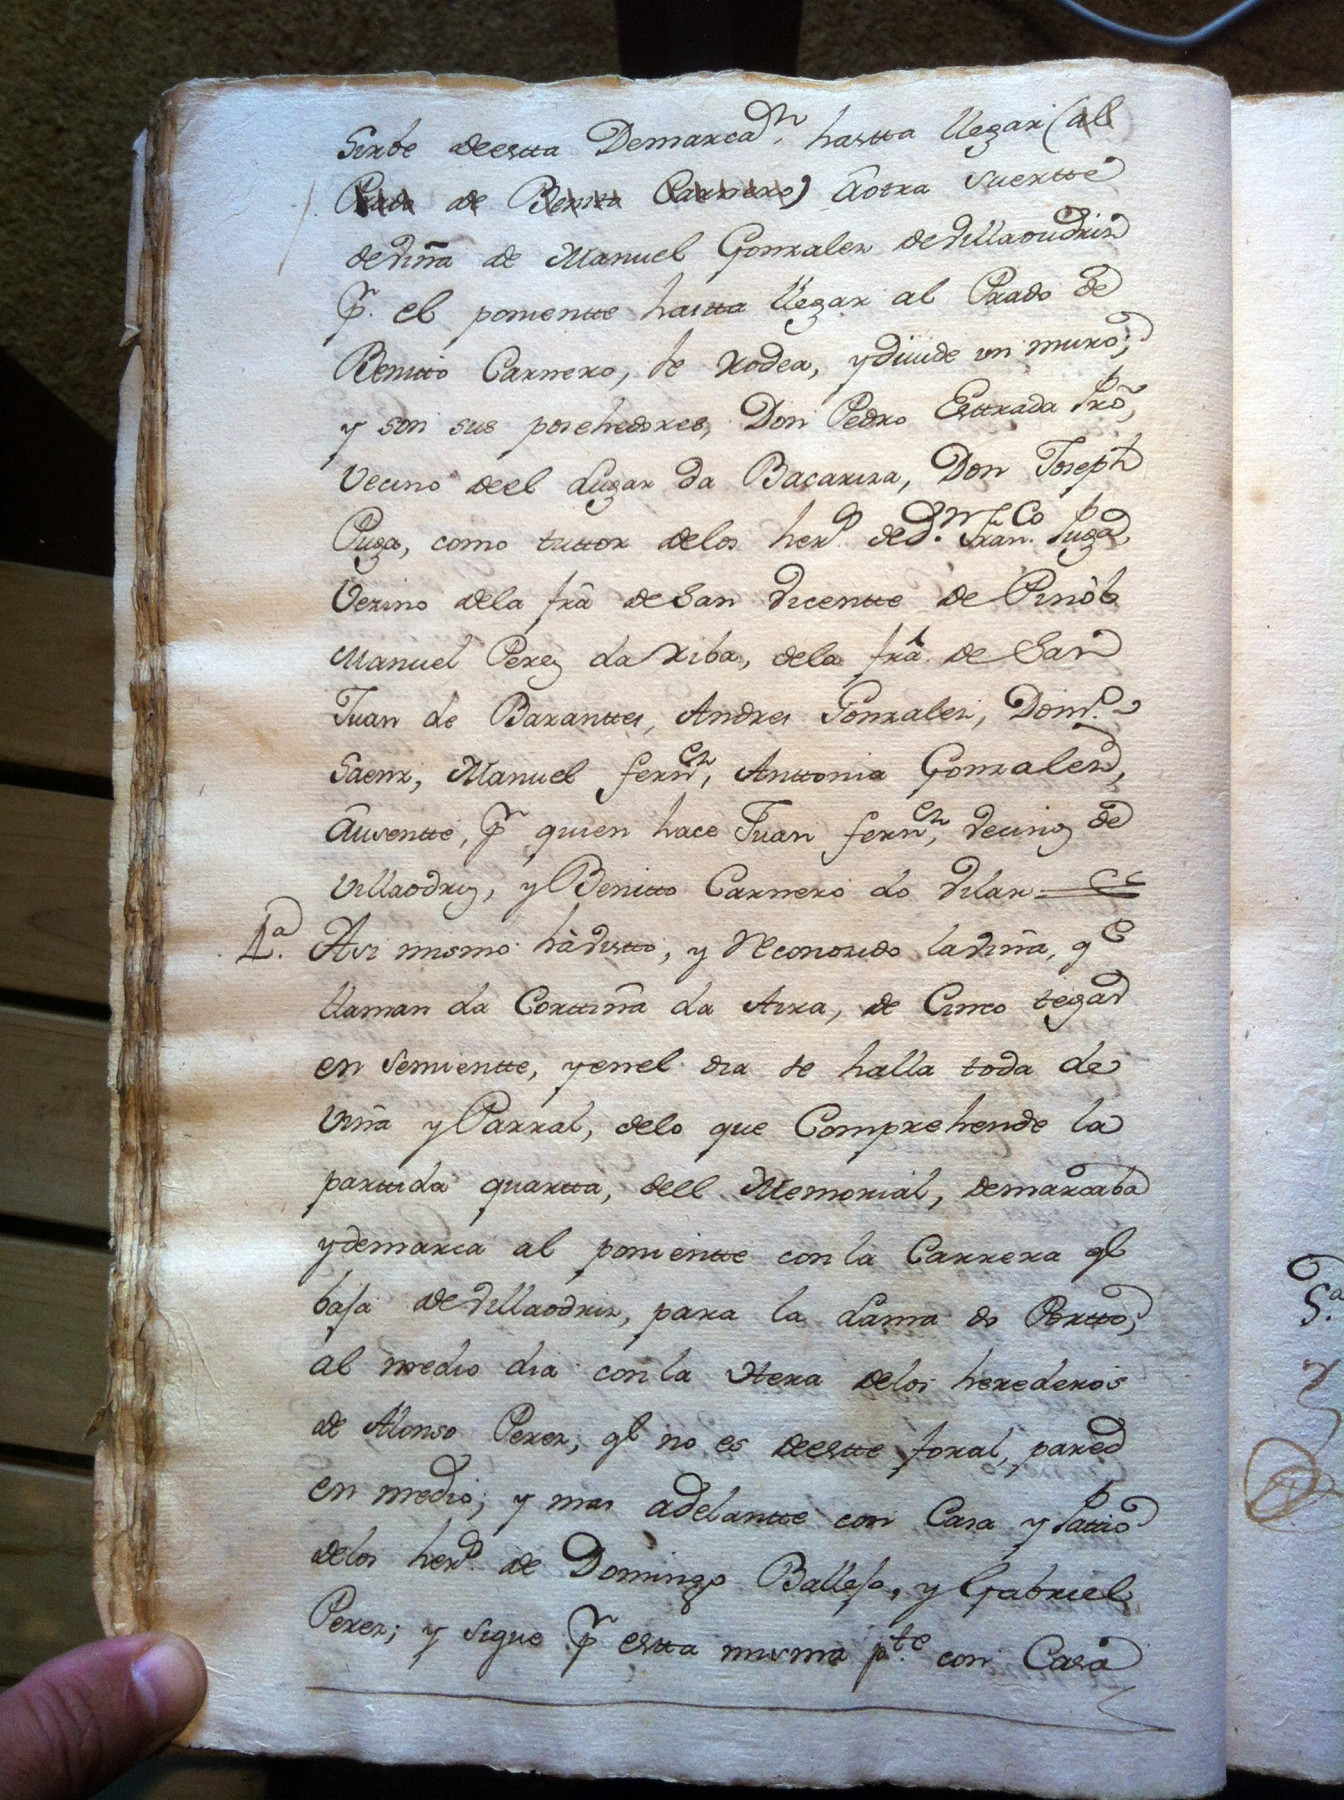 Sirbe deestta Demarca.on hastta llegar (al
Prado de Benito Carnero) â otra suertte
de viña de Manuel Gonzalez de Villaoudriz
Pr. el ponientte hastta llegar al Prado de
Benitto Carnero, se rodea, y diuide vn muro;
y son sus posehedores, Don Pedro Esttrada Pro,
Vecino deel Lugar da Bacariza, Don Joseph
Puga, como tuttor delos hers. de Dn. Franco. Puga,
Vezino dela fra de San Vicentte de Pinòl
Manuel Perez da Riba, dela fra. de San
Juan de Baranttes, Andres Gonzalez, Domo.
Saenz, Manuel fernez, Anttonia Gonzalez,
âusentte, pr quien hace Juan fernez, vecinos de
Villaodriz, y Benitto Carnero do Vilar
4a. Asi mismo hà vistto, y Reconozido la viña, qe
llaman da Corttiña da Aira, de Cinco tegas
en semientte, y en el dia se halla toda de
viña y Parral, delo que Comprehende la
parttida quartta, deel Memorial, demarcaba
y demarca al ponientte con la Carrera qe
baja de Villaodriz, para la Lama do Portto,
al medio dia con la Hera delos herederos
de Alonso Perez, qe no es deestte foral, pared
en medio; y mas adelantte con Casa y Pattio
delos hers. de Domingo Ballejo, y Gabriel
Perez; y sigue pr estta misma pte. con Casa
5a.